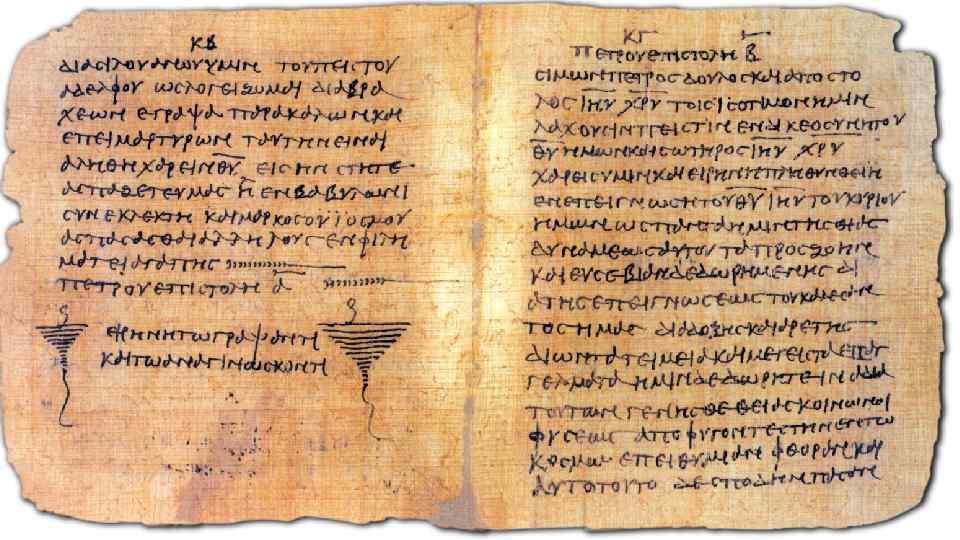 ΚΒ
διασιλουανουυμιν τουπειστου
αδελφου ωσλογειζομαι διαβρα
χεων εγραψα παρακαλωνκαι
επειμαρτυρων ταυτηνειναι
αληθηχαρεινθ̅υ̅ εισηνστητε
ασπαζετευμας η ενβαβυλωνι
συνεκλεκτη καιμαρκοσουϊοσμου
ασπασασθαιαλληλους ενφιλη
ματειαγαπης
πετρουεπιστολη α̅
ειρηνητωγραψαντι
καιτωαναγινωσκοντι
ΚΓ
πετρουεπιστολη β̅
σιμωνπετρος δουλοσκαιαποστο
λος ι̅η̅υ̅ χ̅ρ̅υ̅ τοισϊσοτιμονημιν
λαχουσινπιστιν ενδικεοσυνητου
θ̅υ̅ ημωνκαισωτηρος ι̅η̅υ̅ χ̅ρ̅υ̅
χαρεισυμινκαιειρηνηπληθυνθειη
ενεπειγνωσητουθ̅υ̅ ι̅η̅υ̅ τουκυριου
ημων ωσπανταημιντησθιας
δυναμεωσαυτου ταπροσζωην
καιευσεβιανδεδωρημενης δι
ατησεπειγνωσεωσ τουκαλεσαν
τοσημας διαδοξησκαιαρετης
διωντατειμειακαιμεγειστα επαγ
γελματα ημινδεδωρητεινα δια
τουτων γενησθεθειασκοινωνοι
φυσεως αποφυγοντεστηνεντω
κοσμω επειθυμειαν φθοραν και
αυτοτουτο δεσπουδηνπασαν